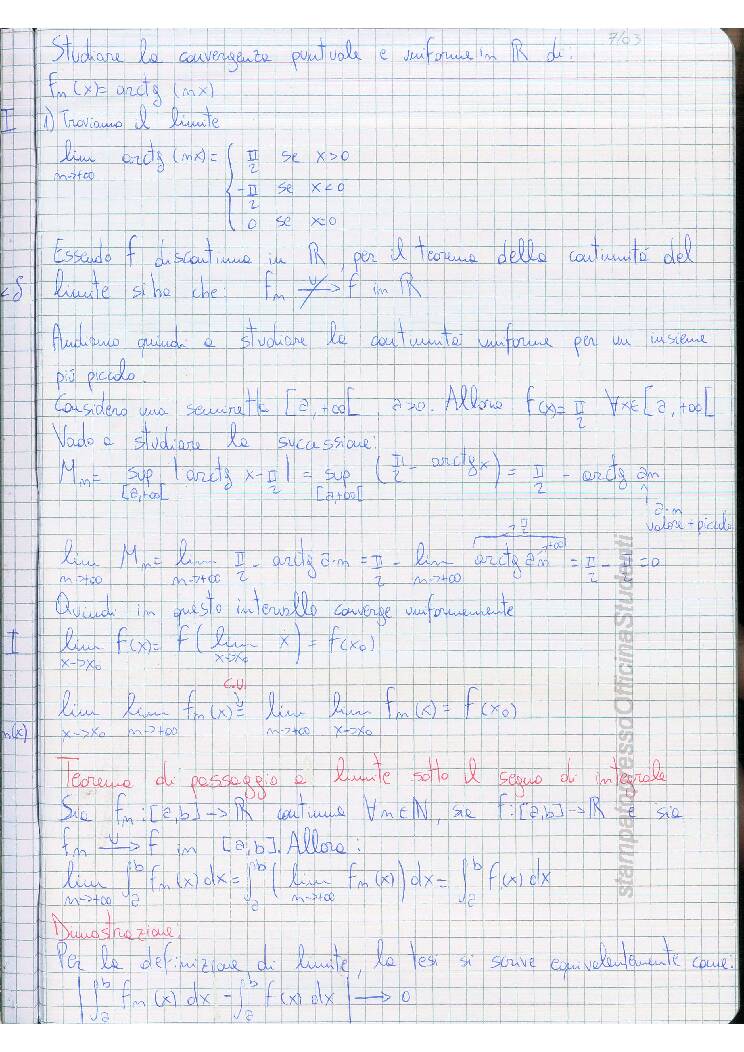 7/03
Studiare la convergenza puntuale e uniforme in ℝ di:
fₙ(x)= arctg (nx)
I
1) Troviamo il limite
lim n→+∞ arctg (nx) = { π/2 se x>0
-π/2 se x<0
0 se x=0
Essendo f discontinua in ℝ, per il teorema della continuità del
limite si ha che: fₙ -u-/-> f in ℝ
Andiamo quindi a studiare la continuità uniforme per un insieme
più piccolo.
Considero una semiretta [a,+∞[, a>0. Allora f(x)= π/2 ∀x∈[a,+∞[
Vado a studiare la successione:
Mₙ= sup [a,+∞[ |arctg x - π/2| = sup [a+∞[ (π/2 - arctg x) = π/2 - arctg an
↑ a·n
valore + piccolo
lim n→+∞ Mₙ= lim n→+∞ π/2 - arctg a·n = π/2 - lim n→+∞ arctg an = π/2 - π/2 = 0
Quindi in questo intervallo converge uniformemente
I
lim x→x₀ f(x)= f( lim x→x₀ x) = f(x₀)
C.U.
lim x→x₀ lim n→+∞ fₙ(x) = lim n→+∞ lim x→x₀ fₙ(x)= f(x₀)
n(x)
Teorema di passaggio a limite sotto il segno di integrale
Sia fₙ:[a,b]→ℝ continua ∀n∈ℕ, sia f:[a,b]→ℝ e sia
fₙ -u-> f in [a,b]. Allora:
lim n→+∞ ∫ₐᵇ fₙ(x) dx = ∫ₐᵇ ( lim n→+∞ fₙ(x)) dx = ∫ₐᵇ f(x) dx
Dimostrazione:
Per la definizione di limite, la tesi si scrive equivalentemente come:
|∫ₐᵇ fₙ(x) dx - ∫ₐᵇ f(x) dx| → 0
stampatopressoOfficinaStudenti